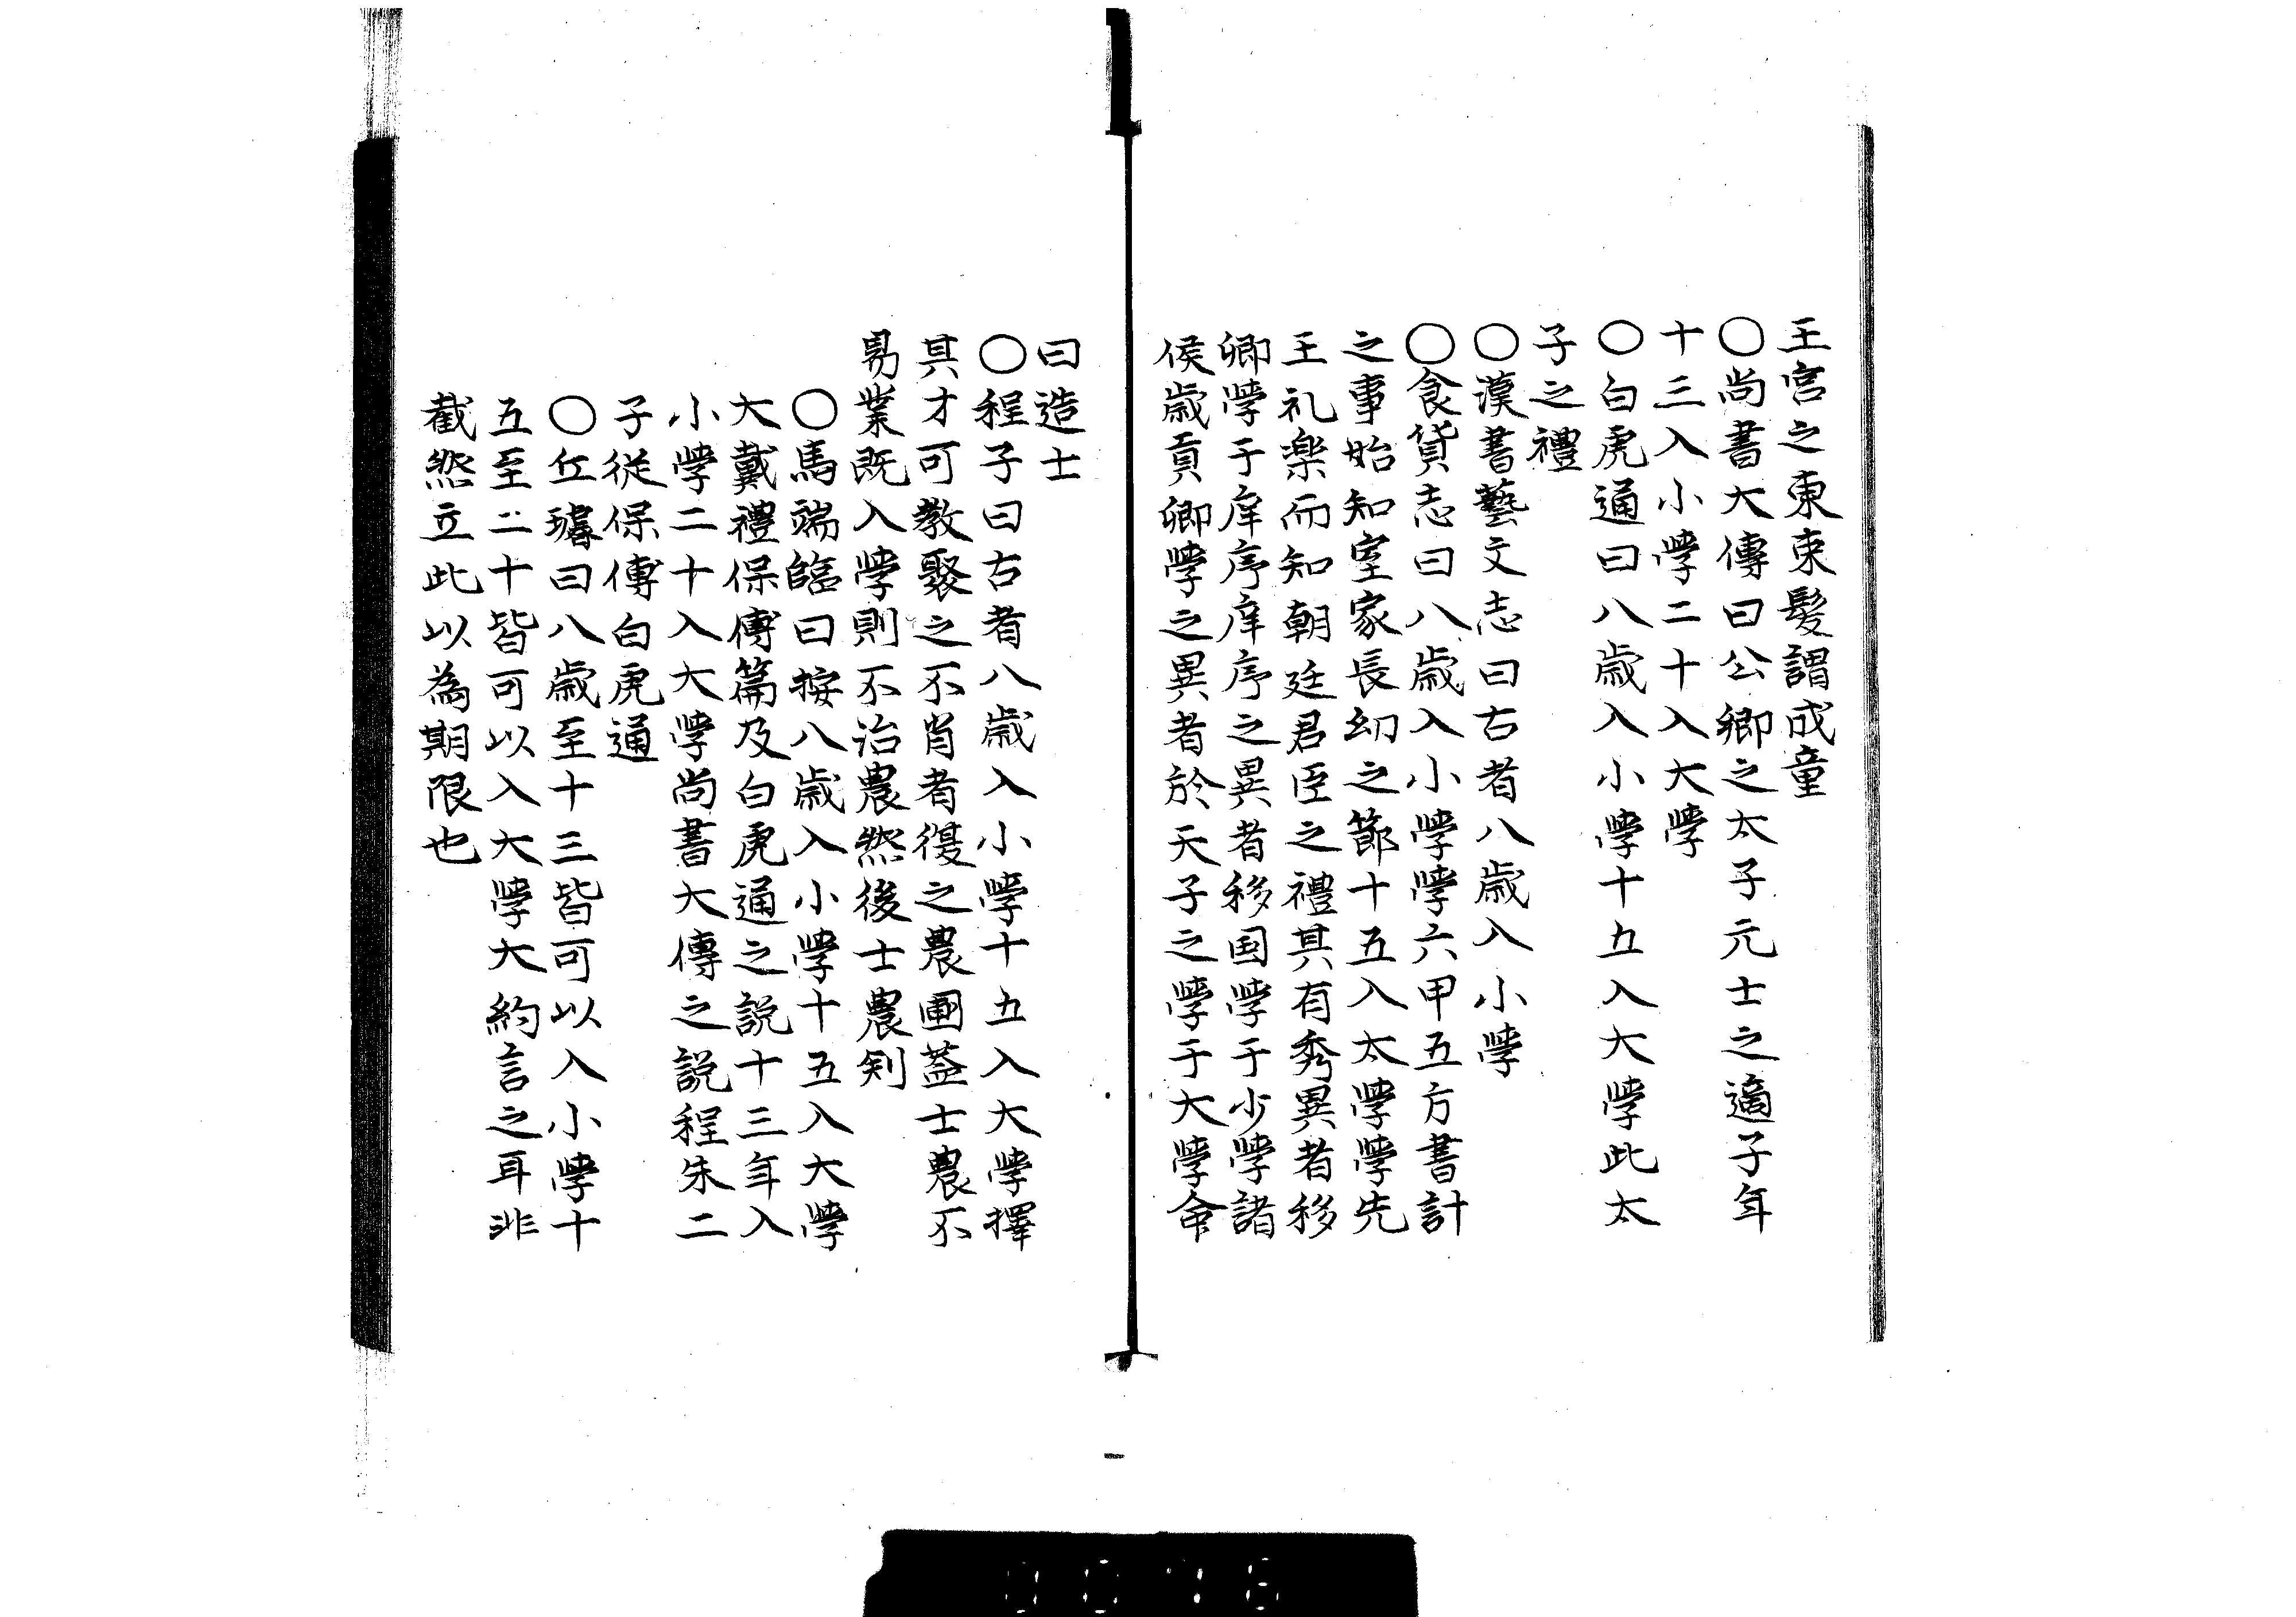 王宮之東束髮謂成童
〇尚書大傳曰公卿之太子元士之適子年
十三入小學二十入大學
〇白虎通曰八歳入小學十五入大學此太
子之禮
〇漢書藝文志曰古者八歳入小學
〇食貨志曰八歳入小學學六甲五方書計
之事始知室家長幼之節十五入太學學先
王礼楽而知朝廷君臣之禮其有秀異者移
卿學于庠序庠序之異者移国學于少學諸
侯歳貢卿學之異者於天子之學于大學命
曰造士
〇程子曰古者八歳入小學十五入大學擇
其才可教聚之不肖者復之農圃蓋士農不
易業既入學則不治農然後士農判
〇馬端臨曰按八歳入小學十五入大學
大戴禮保傅篇及白虎通之説十三年入
小學二十入大學尚書大傳之説程朱二
子從保傅白虎通
〇丘璿曰八歳至十三皆可以入小學十
五至二十皆可以入大學大約言之耳非
截然立此以為期限也